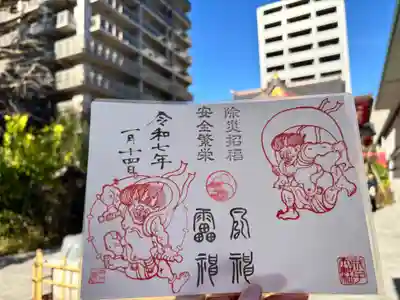 除災招福
安全繁栄
風神
雷神
令和七年
一月十四日